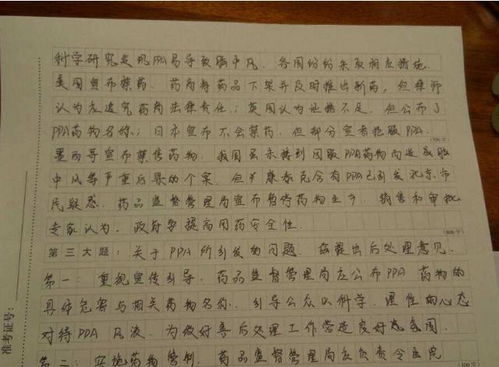 科学研究发现PPA易导致脑中风，各国纷纷采取相应措施。
美国宣布禁药，药商将药品下架并及时推出新药，但律师
认为应追究药商法律责任；英国认为证据不足，但公布了
PPA药物名称；日本宣布不会禁药，但部分患者抵服PPA；
墨西哥宣布禁售药物。我国虽未接到因服PPA药物而造成脑
中风等严重后果的个案，但 康泰克含有PPA已引发北京市
民疑惑，药品监督管理局宣布暂停药物生产、销售和审批
专家认为，政府要提高用药安全性。
第三大题：关于PPA所引发的问题，兹提出后处理意见。
第一：重视宣传引导。药品监督管理局应公布PPA药物的
具体危害与相关药物名称，引导公众以科学、理性的心态
对待PPA风波，为做好善后处理工作营造良好氛围。
第二：实施药物管制。药品监督管理局应负责令医院
准考证号：